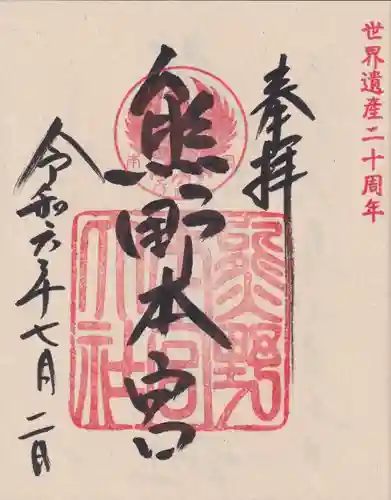 世界遺産二十周年
奉拝
熊野本宮
熊野
本宮
大社
令和六年七月二日